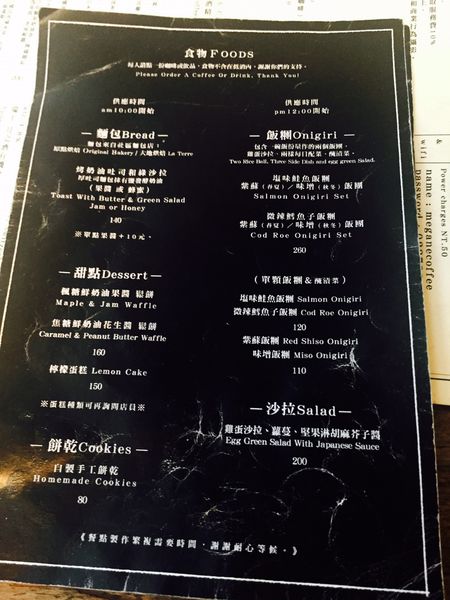 食物 FOODS
每人請點一份咖啡或飲品，食物不含在低消內，謝謝你們的支持。
Please Order A Coffee Or Drink, Thank You!
供應時間
am10:00開始
— 麵包Bread —
麵包來自社區麵包店：
原點烘焙 Original Bakery / 大地烘焙 La Terre
烤奶油吐司和綠沙拉
厚吐司麵包抹有鹽發酵奶油
（果醬 或 蜂蜜）
Toast With Butter & Green Salad
Jam or Honey
140
※單點果醬＋10元。
— 甜點Dessert —
楓糖鮮奶油果醬 鬆餅
Maple & Jam Waffle
焦糖鮮奶油花生醬 鬆餅
Caramel & Peanut Butter Waffle
160
檸檬蛋糕 Lemon Cake
150
※蛋糕種類可再詢問店員※
— 餅乾Cookies —
自製手工餅乾
Homemade Cookies
80
供應時間
pm12:00開始
— 飯糰Onigiri —
包含一碗飯份量作的兩個飯糰、
雞蛋沙拉、兩樣每日配菜、醃漬菜。
Two Rice Ball, Three Side Dish and egg green Salad.
塩味鮭魚飯糰
紫蘇（春夏）／味增（秋冬）飯團
Salmon Onigiri Set
微辣鱈魚子飯糰
紫蘇（春夏）／味增（秋冬）飯團
Cod Roe Onigiri Set
260
（單顆飯糰＆醃漬菜）
塩味鮭魚飯糰 Salmon Onigiri
微辣鱈魚子飯糰 Cod Roe Onigiri
120
紫蘇飯糰 Red Shiso Onigiri
味增飯糰 Miso Onigiri
110
— 沙拉Salad —
雞蛋沙拉、蘿蔓、堅果淋胡麻芥子醬
Egg Green Salad With Japanese Sauce
200
&
wifi
Power charges NT.50
name : meganecoffee
password